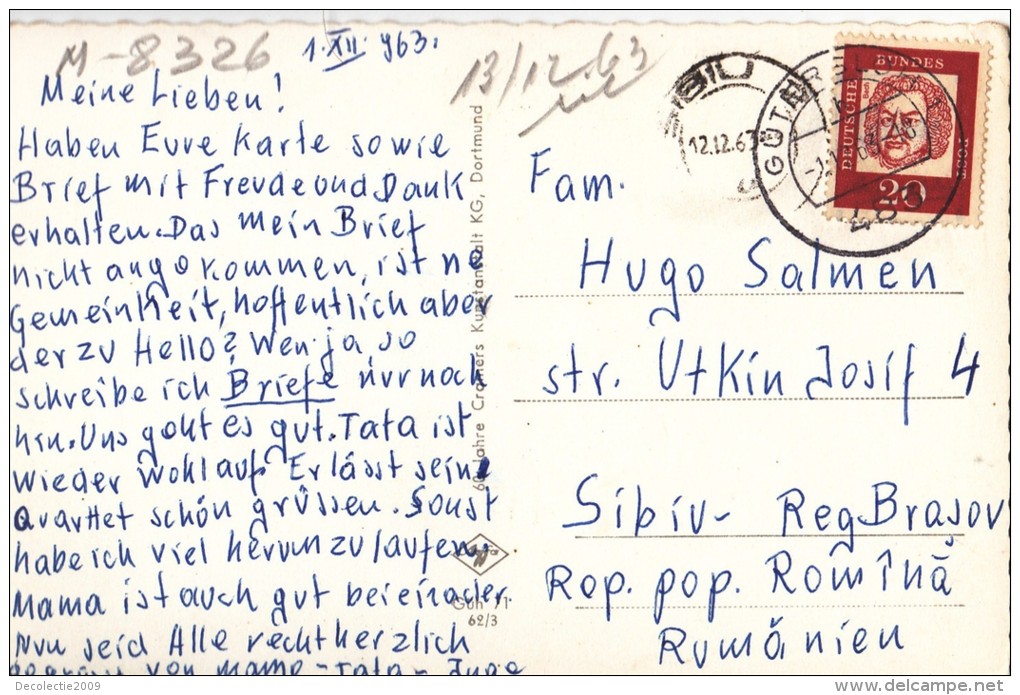 M-8326
1.XII.963.
13/12.63
Meine Lieben!
Haben Eure Karte sowie
Brief mit Freude und Dank
erhalten. Das mein Brief
nicht angekommen, ist ne
Gemeinheit, hoffentlich aber
der zu Hello? Wen ja, so
schreibe ich Briefe nur noch
hin. Uns geht es gut. Tata ist
wieder wohlauf. Er lässt sein
Quartett schön grüssen. Sonst
habe ich viel herum zu laufen.
Mama ist auch gut beieinader
Nun seid Alle recht herzlich
von Mama - Tata - Inge
60 Jahre Cramers Kunstanstalt KG, Dortmund
Güh 71
62/3
SIBIU
12.12.63
GÜTERSLOH
DEUTSCHE
BUNDES
POST
Bach
20
Fam.
Hugo Salmen
str. Utkin Josif 4
Sibiu - Reg Brasov
Rep. pop. Romînă
Rumänien
Decolectie2009
delcampe.net